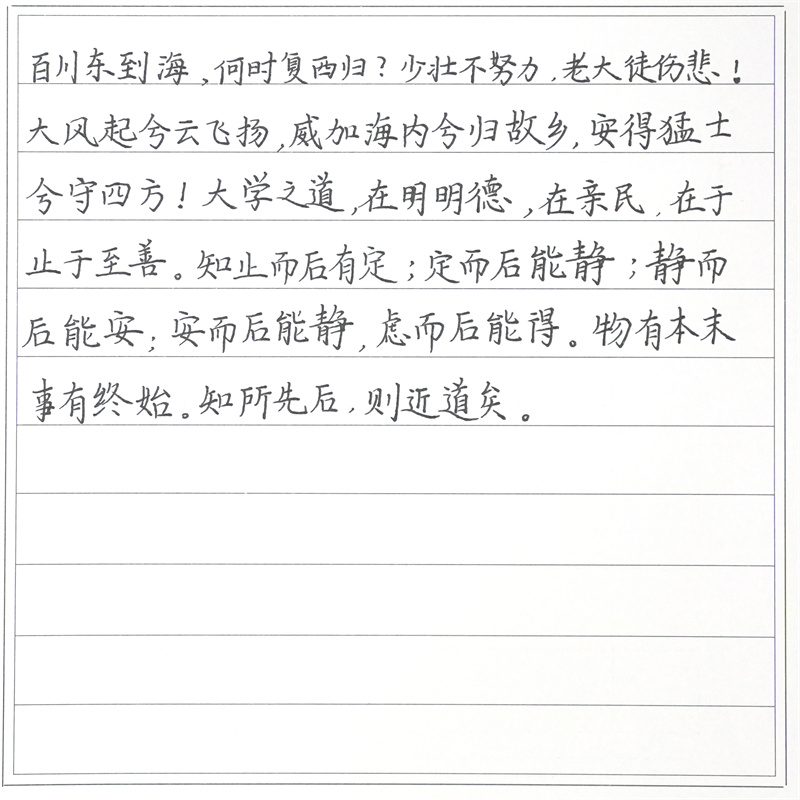 百川东到海,何时复西归?少壮不努力,老大徒伤悲!
大风起兮云飞扬,威加海内兮归故乡,安得猛士
兮守四方!大学之道,在明明德,在亲民,在于
止于至善。知止而后有定;定而后能静;静而
后能安;安而后能静,虑而后能得。物有本末
事有终始。知所先后,则近道矣。